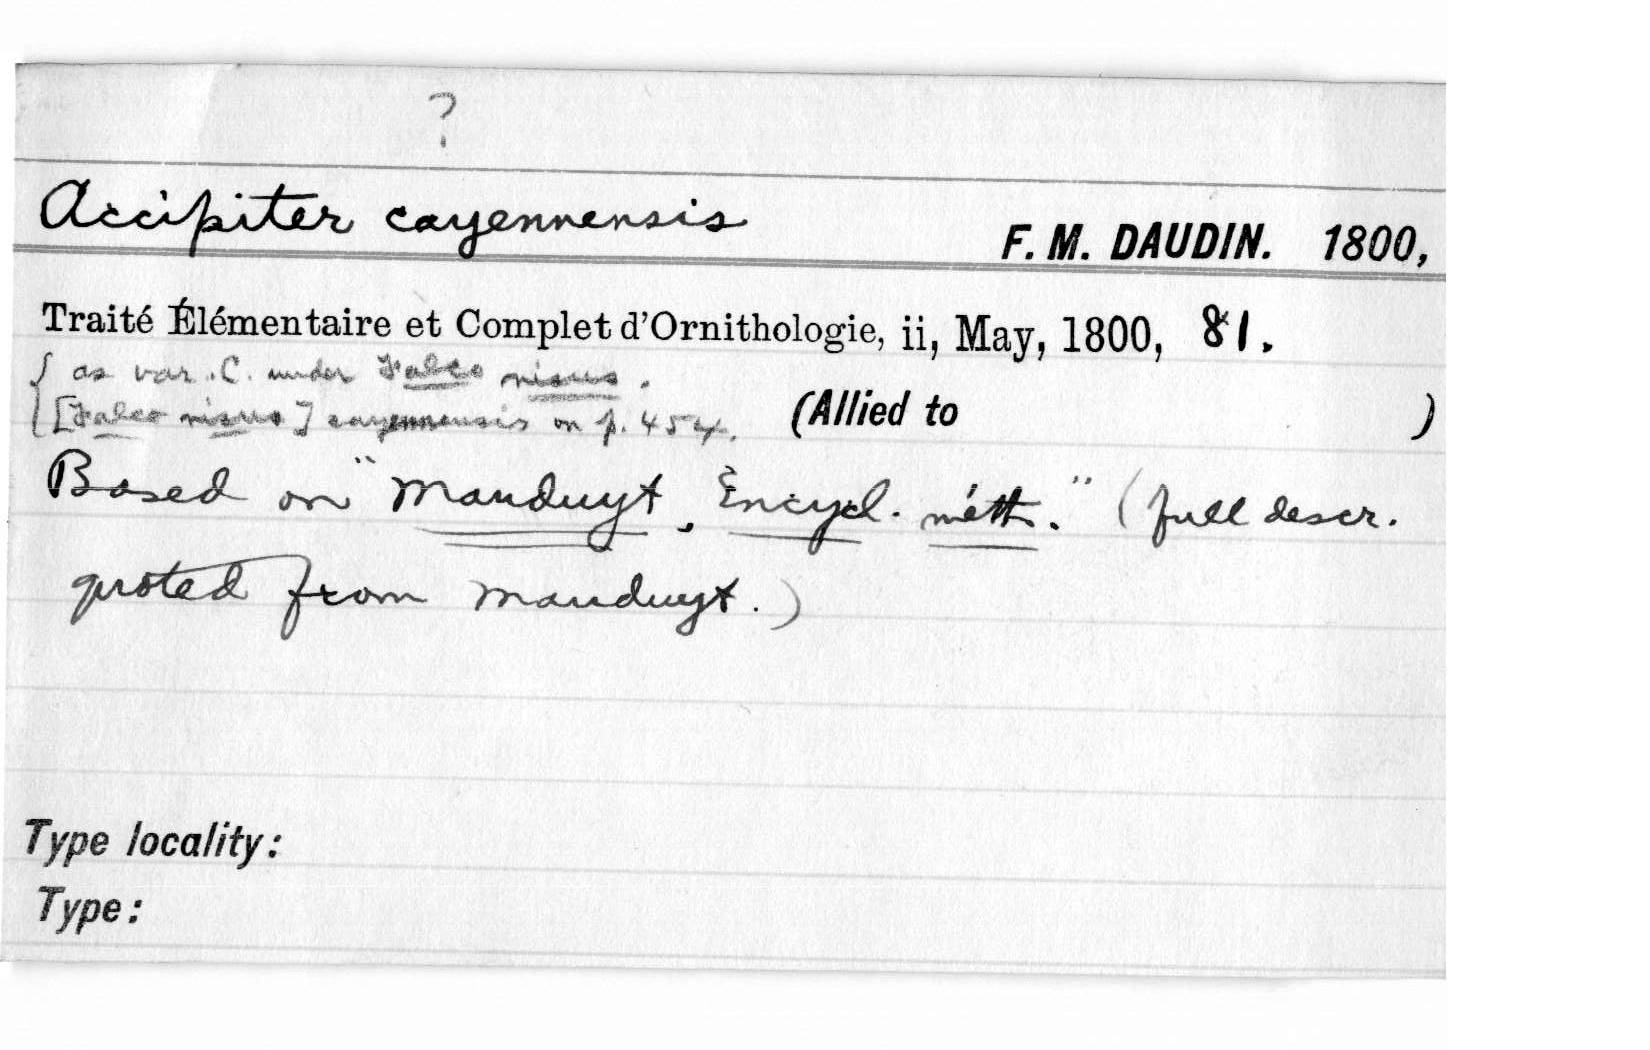 ?
Accipiter cayennensis F. M. DAUDIN. 1800,
Traité Élémentaire et Complet d'Ornithologie, ii, May, 1800, 81.
{ as var. C. under Falco nisus.
[Falco nisus] cayennensis on p. 454. (Allied to )
Based on "Mauduyt, Encycl. méth." (full descr.
quoted from Mauduyt.)
Type locality:
Type: